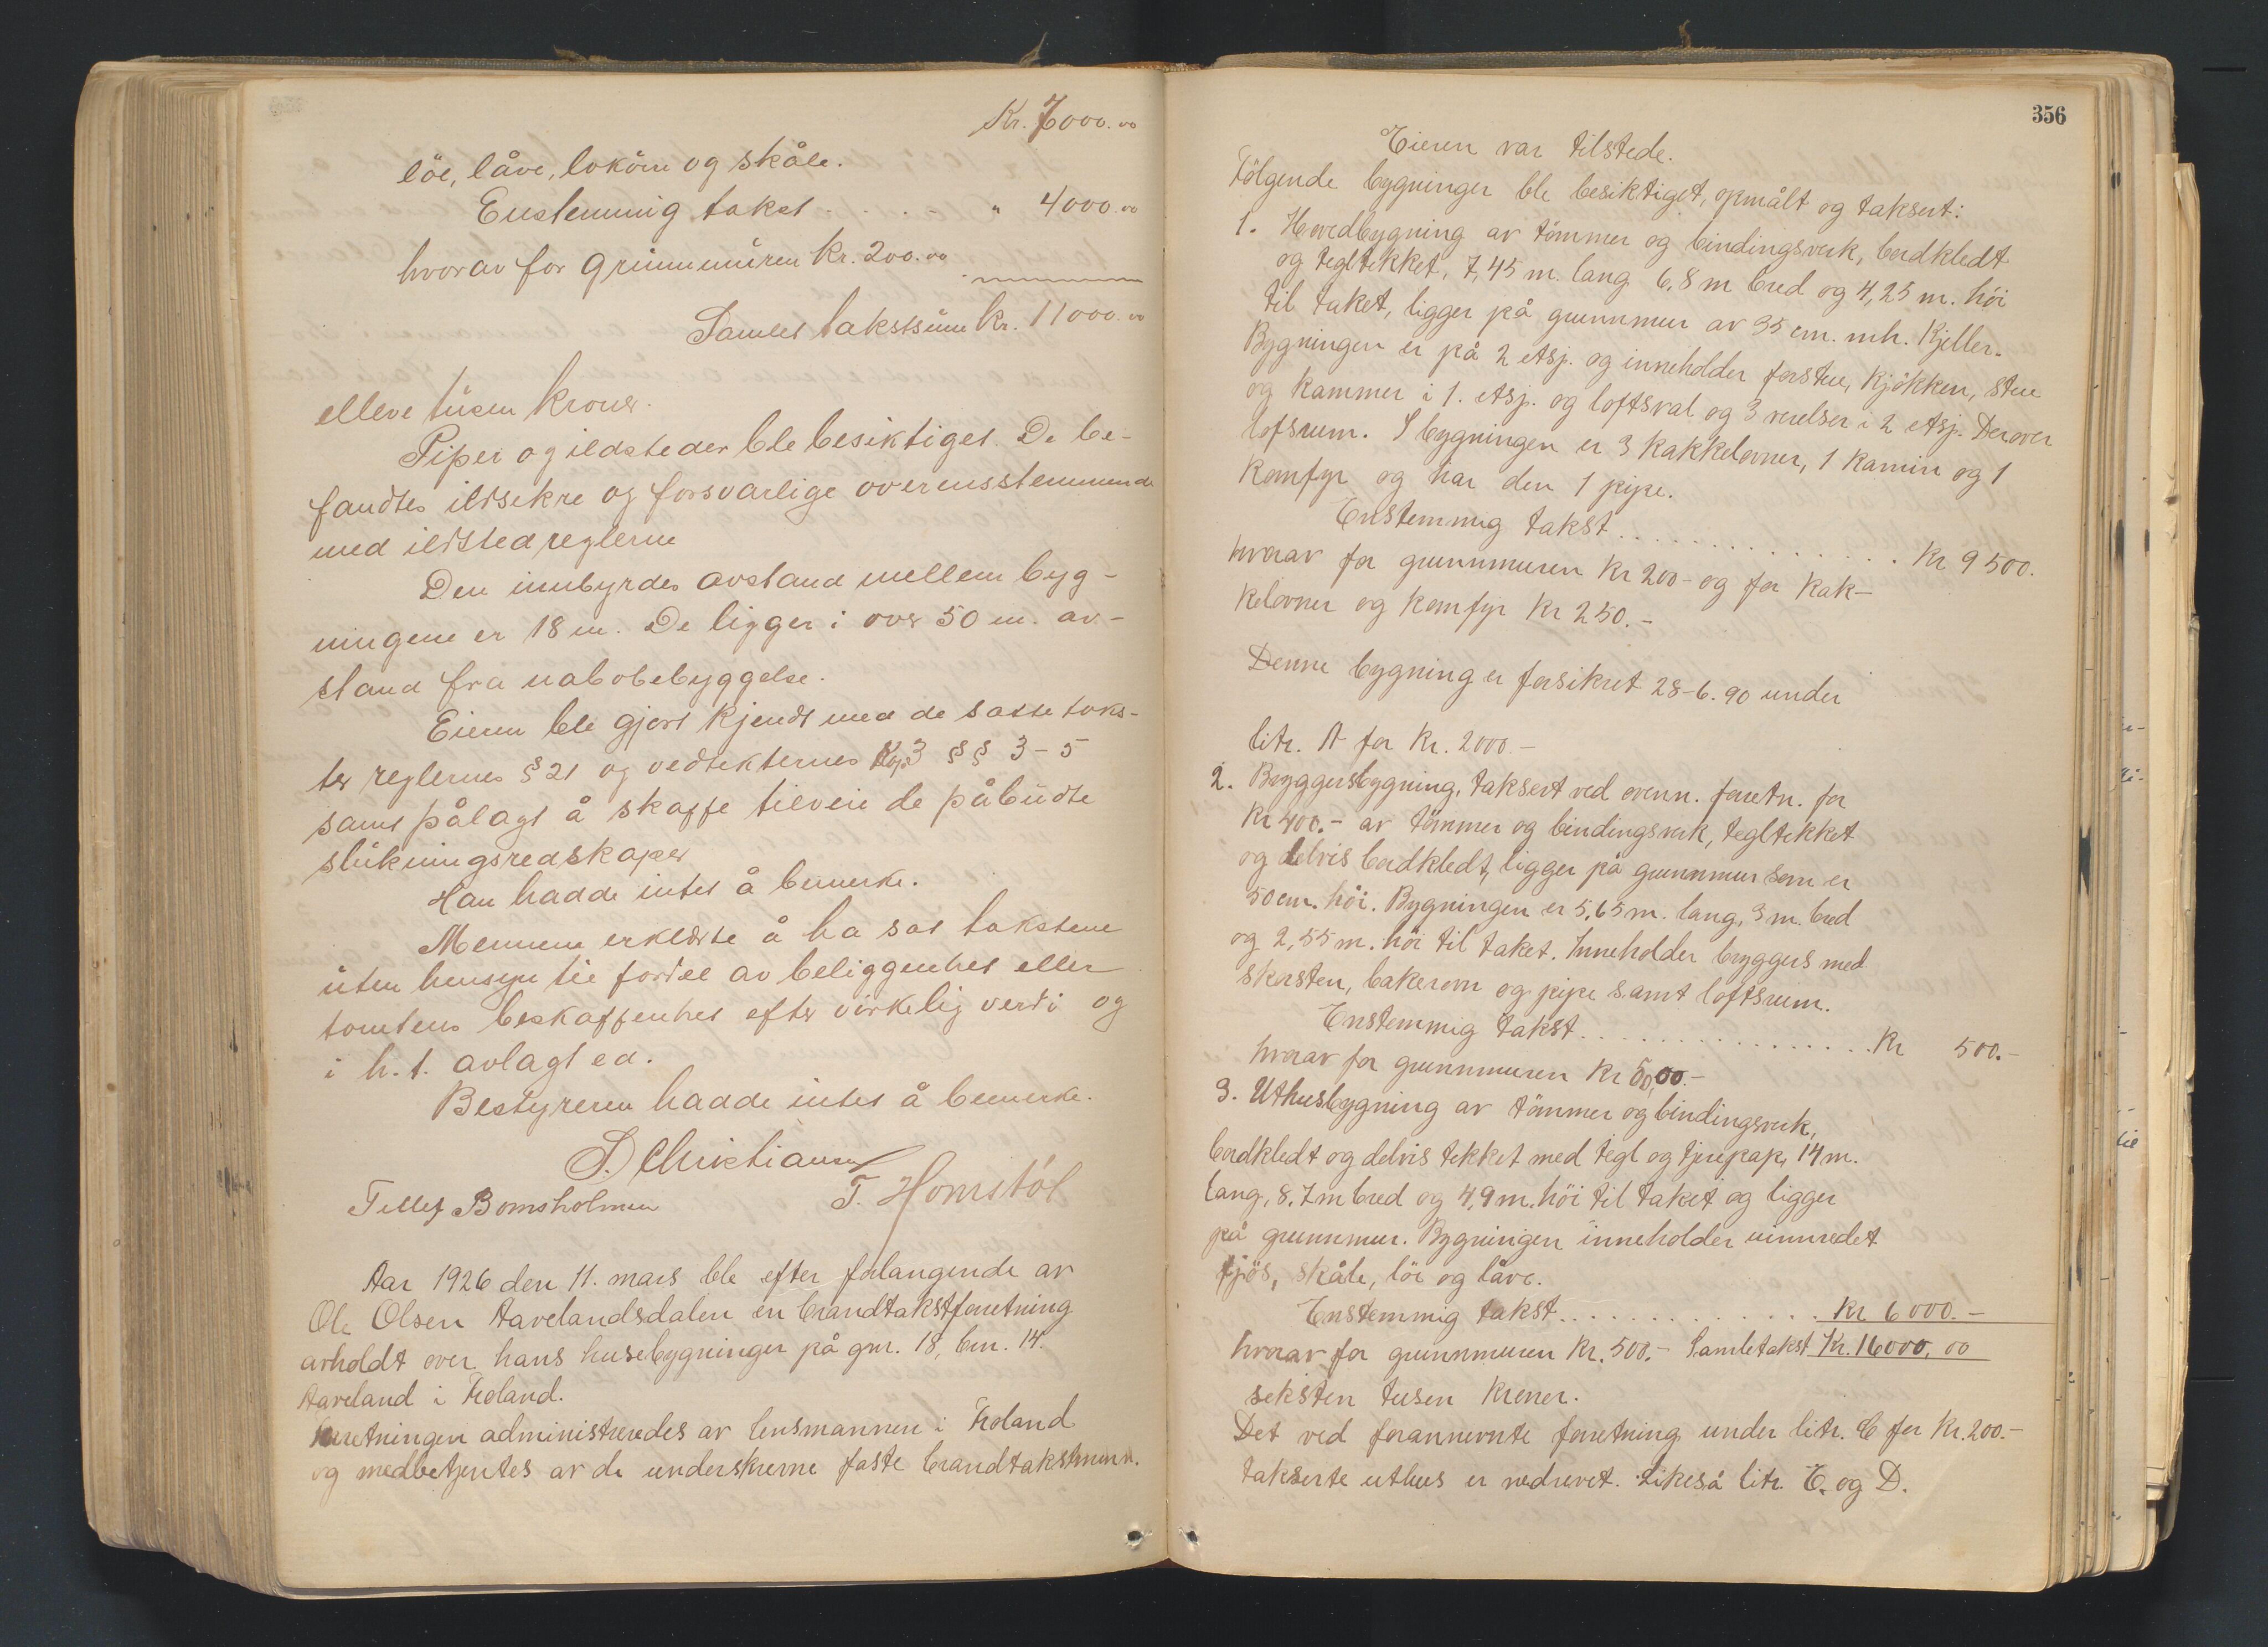 Kr. 7000.00
löe, låve, loköm og skåle.
Enstemmig takst . . . - " 4000.00
hvorav for grunnmuren kr. 200.00
Samlet takstsum kr. 11000.00
elleve tusen kroner.
Piper og ildsteder ble besiktiget. De be-
fandtes ildsikre og forsvarlige overensstemmende
med ildstedreglerne
Den innbyrdes avstand mellem byg-
ningene er 18 m. De ligger i over 50 m. av-
stand fra nabobebyggelse.
Eieren ble gjort kjendt med de satte taks-
ter reglernes § 21 og vedtekternes Kap 3 §§ 3-5
samt pålagt å skaffe tilveie de påbudte
slukningsredskaper
Han hadde intet å bemerke.
Mennene erklærte å ha sat takstene
uten hensyn til fordel av beliggenhet eller
tomtens beskaffenhet efter virkelig verdi og
i h. t. avlagt ed.
Bestyreren hadde intet å bemerke.
S. Christiansen
Tellef Bomsholmen T. Homstöl
Aar 1926 den 11. mars ble efter forlangende av
Ole Olsen Aavelandsdalen en brandtakstforretning
avholdt over hans husebygninger på gnr. 18, bnr. 14.
Aaveland i Froland.
Forretningen administreredes av lensmannen i Froland
og medbetjentes av de underskrevne faste brandtakstmenn.
356
Eieren var tilstede.
Fölgende bygninger ble besiktiget, opmålt og taksert:
1. Hovedbygning av tömmer og bindingsverk, bordkledt
og tegltekket, 7,45 m. lang 6,8 m bred og 4,25 m. höi
til taket, ligger på grunnmur av 35 cm. mh. Kjeller.
Bygningen er på 2 etsj. og inneholder forstue, kjökken, stue
og kammer i 1. etsj. og loftsval og 3 verelser i 2 etsj. Derover
loftsrum. I bygningen er 3 kakkelovner, 1 kamin og 1
komfyr og har den 1 pipe.
Enstemmig takst . . . . . . . . . . . . . . Kr 9500.
hvorav for grunnmuren Kr 200- og for kak-
kelovner og komfyr Kr 250.-
Denne bygning er forsikret 28-6.90 under
litr. A for Kr. 2000.-
2. Bryggersbygning, taksert ved ovenn. forretn. for
Kr 400.- av tömmer og bindingsverk, tegltekket
og delvis bordkledt, ligger på grunnmur som er
50 cm. höi. Bygningen er 5,65 m. lang, 3 m. bred
og 2,55 m. höi til taket. Inneholder bryggers med
skorsten, bakerovn og pipe samt loftsrum.
Enstemmig takst . . . . . . . . . . . . . . . Kr 500.-
hvorav for grunnmuren Kr 50,00.-
3. Uthusbygning av tömmer og bindingsverk,
bordkledt og delvis tekket med tegl og tjerepap, 14 m.
lang, 8.7 m bred og 4,9 m. höi til taket og ligger
på grunnmur. Bygningen inneholder uinnredet
fjös, skåle, löe og låve.
Enstemmig takst . . . . . . . . . . . . . Kr 6000.-
hvorav for grunnmuren Kr. 500.- Samletakst Kr. 16000,00
seksten tusen kroner.
Det ved forannevnte forretning under litr. C for Kr. 200.-
takserte uthus er nedrevet. Likeså litr. E. og D.